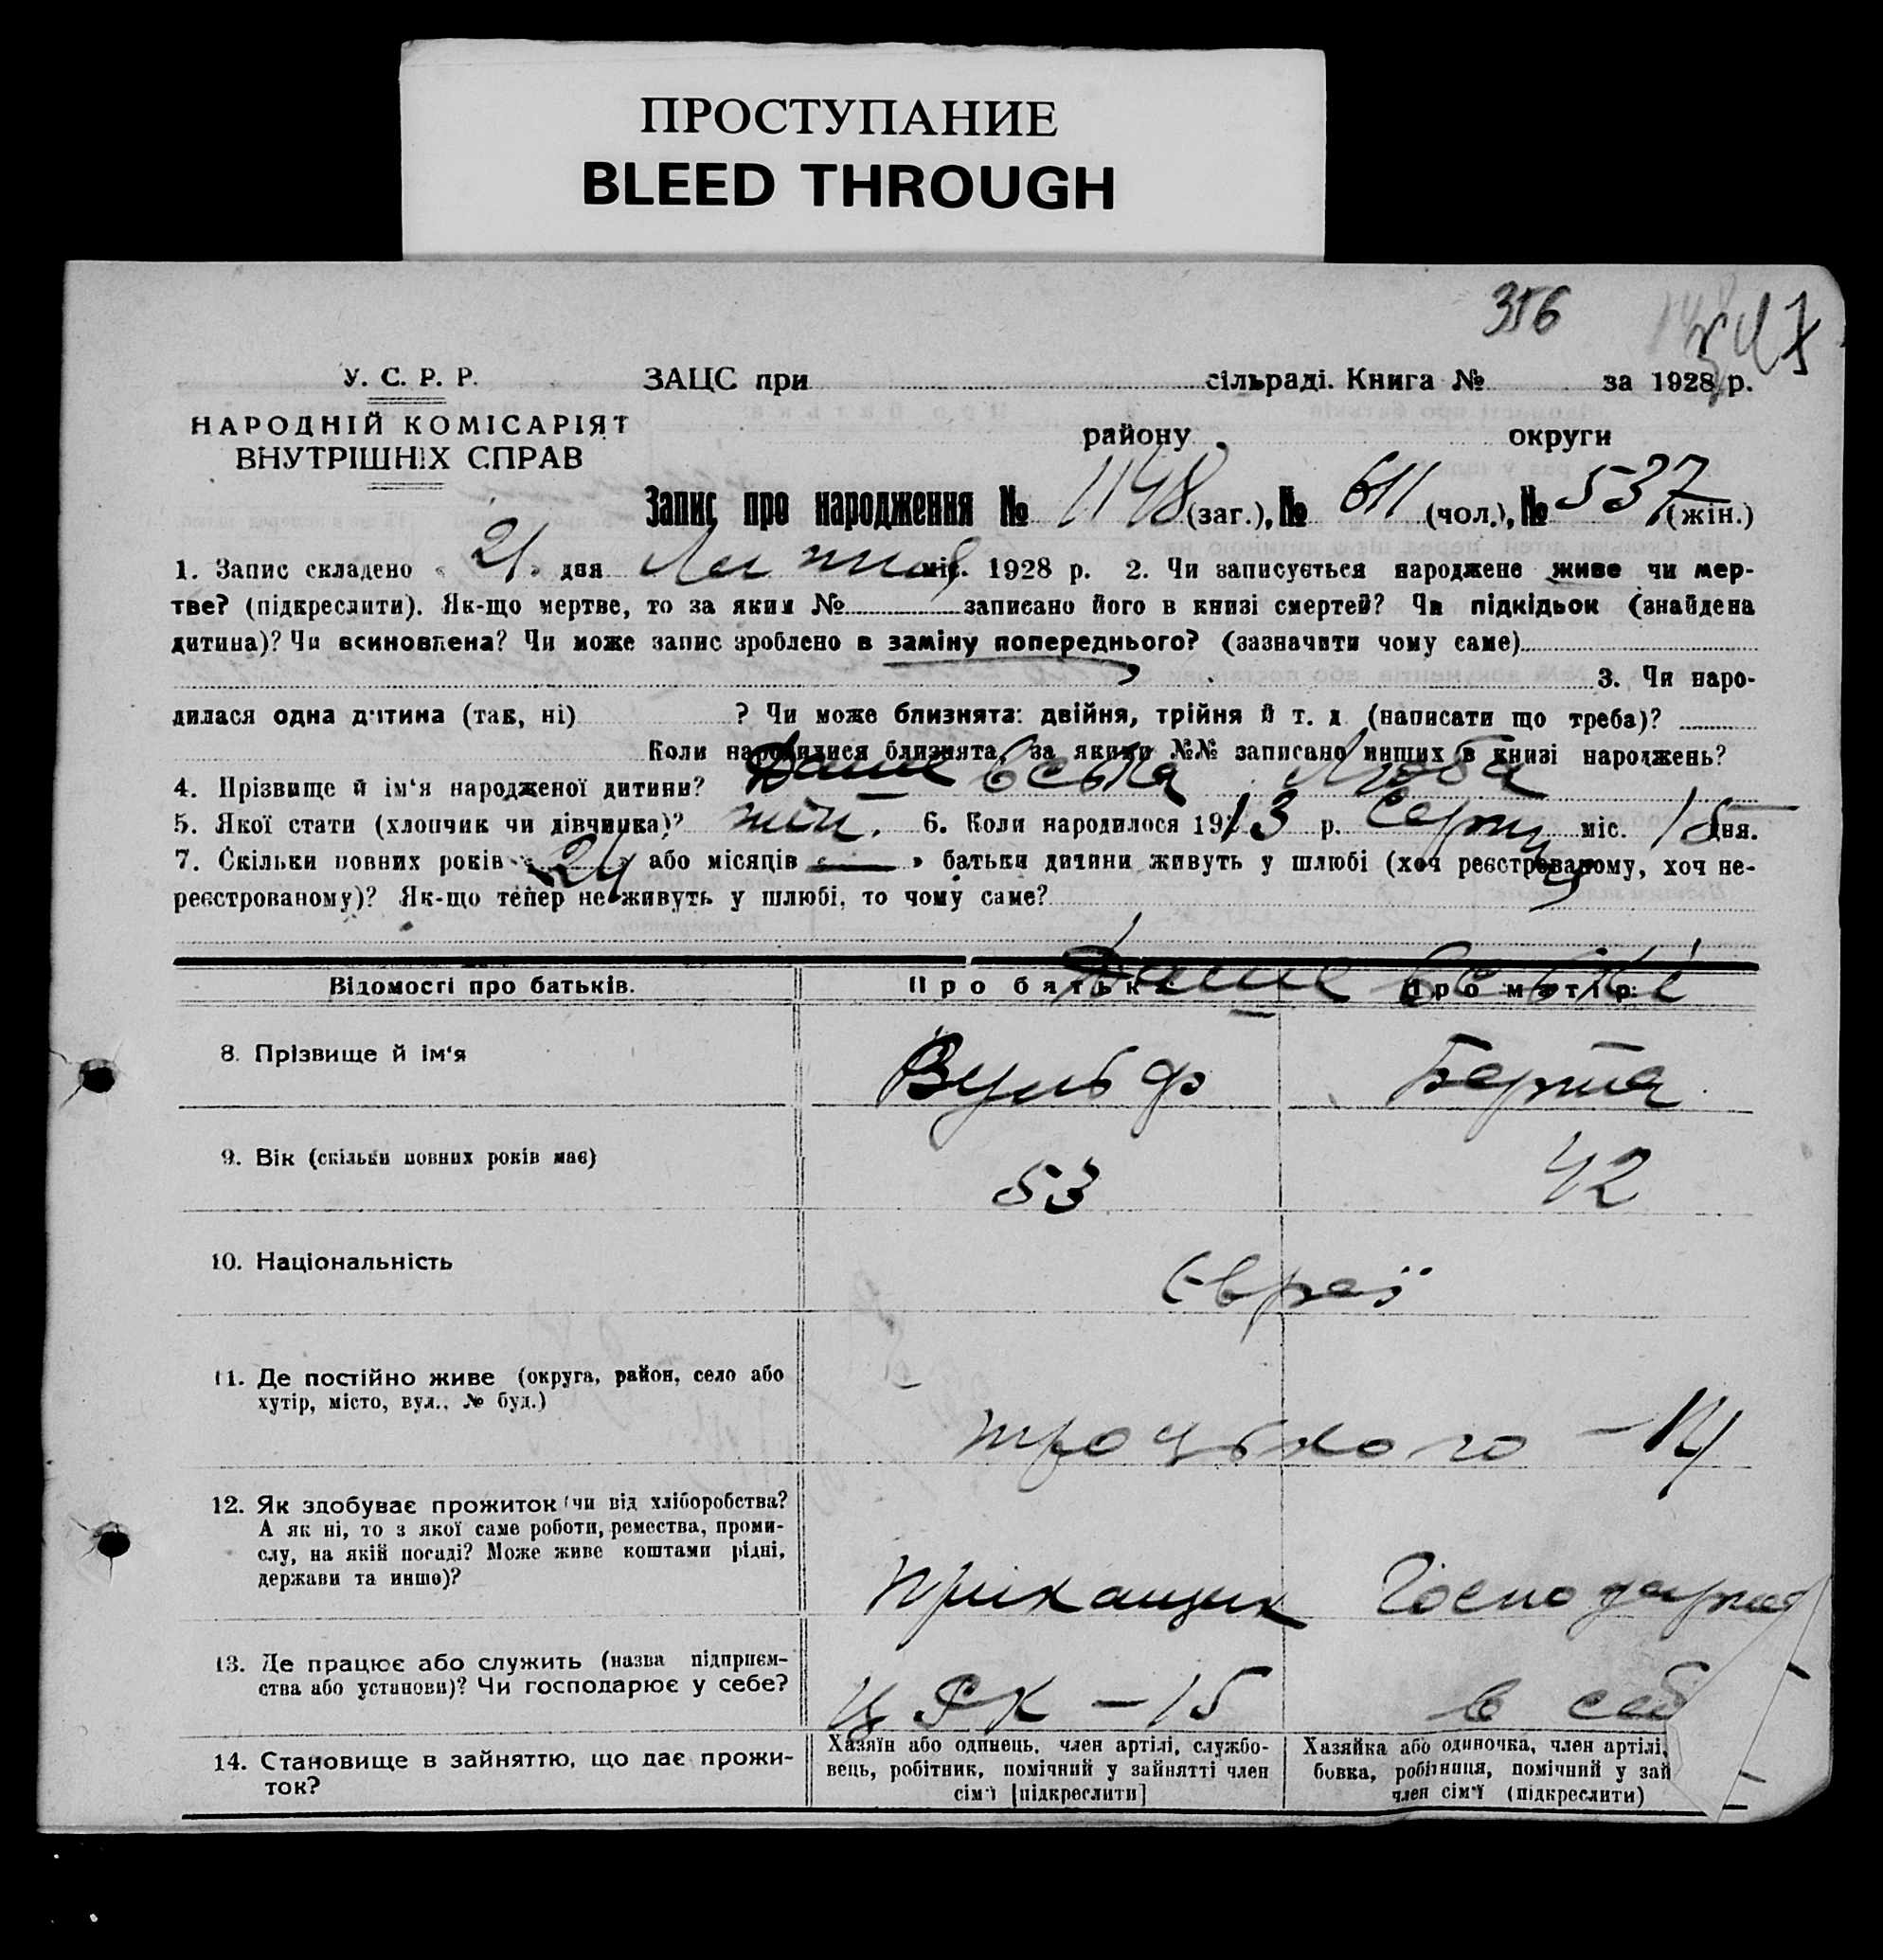 ПРОСТУПАНИЕ
BLEED THROUGH
356
У. С. Р. Р.
ЗАЦС при сільраді. Книга № за 1928 р.
НАРОДНІЙ КОМІСАРІЯТ
ВНУТРІШНІХ СПРАВ
району округи
Запис про народження № 1148 (заг.), № 611 (чол.), № 537 (жін.)
1. Запис складено « 21 » дня Липня міс. 1928 р. 2. Чи записується народжене живе чи мер-
тве? (підкреслити). Як-що мертве, то за яким № записано його в книзі смертей? Чи підкідьок (знайдена
дитина)? Чи всиновлена? Чи може запис зроблено в заміну попереднього? (зазначити чому саме)
3. Чи наро-
дилася одна дитина (так, ні) ? Чи може близнята: двійня, трійня й т. д. (написати що треба)?
Коли народилися близнята, за якими №№ записано инших в книзі народжень?
4. Прізвище й ім'я народженої дитини? Дашевська Люба
5. Якої стати (хлопчик чи дівчинка)? жін. 6. Коли народилося 1913 р. Серпня міс. 15 дня.
7. Скільки повних років « 24 » або місяців « — » батьки дитини живуть у шлюбі (хоч реєстрованому, хоч не-
реєстрованому)? Як-що тепер не живуть у шлюбі, то чому саме?
Відомості про батьків. Про батька Про матір.
Дашевські
8. Прізвище й ім'я Вульф Берта
9. Вік (скільки повних років має) 53 42
10. Національність Євреї
11. Де постійно живе (округа, район, село або
хутір, місто, вул., № буд.)
Троцького - 14
12. Як здобуває прожиток (чи від хліборобства?
А як ні, то з якої саме роботи, ремества, проми-
слу, на якій посаді? Може живе коштами рідні,
держави та инше)?
Прикащик Господарка
13. Де працює або служить (назва підприєм-
ства або установи)? Чи господарює у себе?
ЦРК - 15 в себ
14. Становище в зайняттю, що дає прожи-
ток?
Хазяїн або одинець, член артілі, службо-
вець, робітник, помічний у зайнятті член
сім'ї [підкреслити]
Хазяйка або одиночка, член артілі,
бовка, робітниця, помічний у зай
член сім'ї (підкреслити)